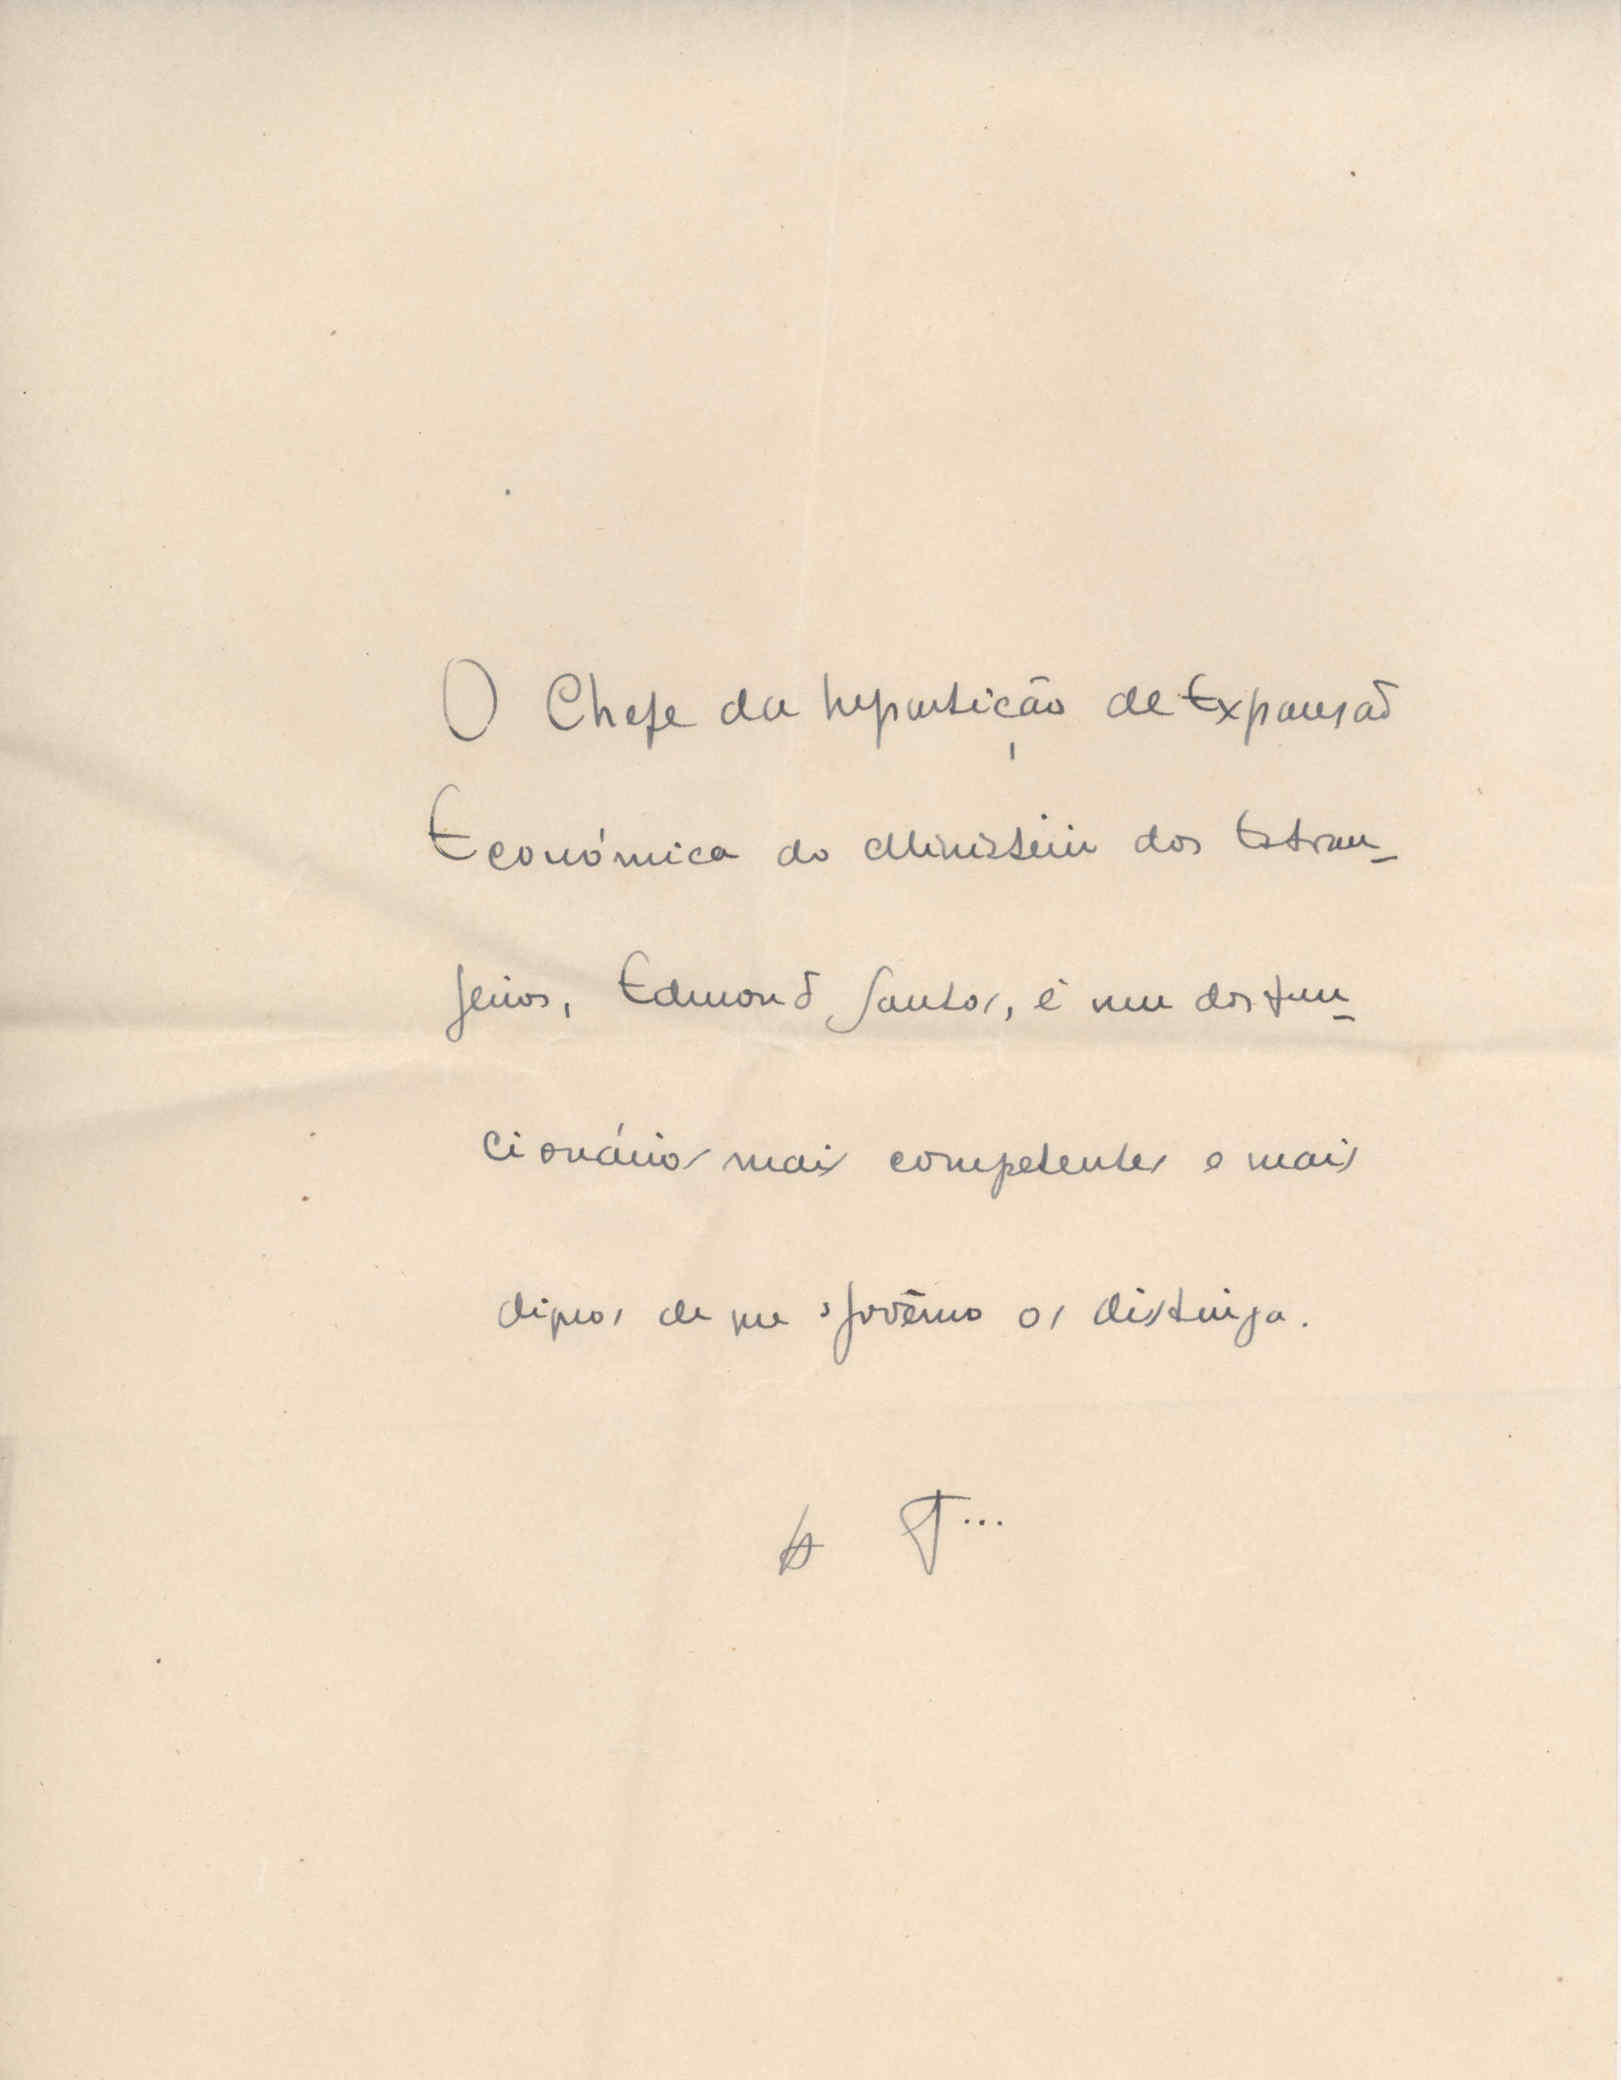 O Chefe da repartição de Expansão
Económica do Ministério dos Estran-
geiros, Edmond Santos, é um dos fun-
cionários mais competentes e mais
dignos de que o govêrno os distinga.
T...